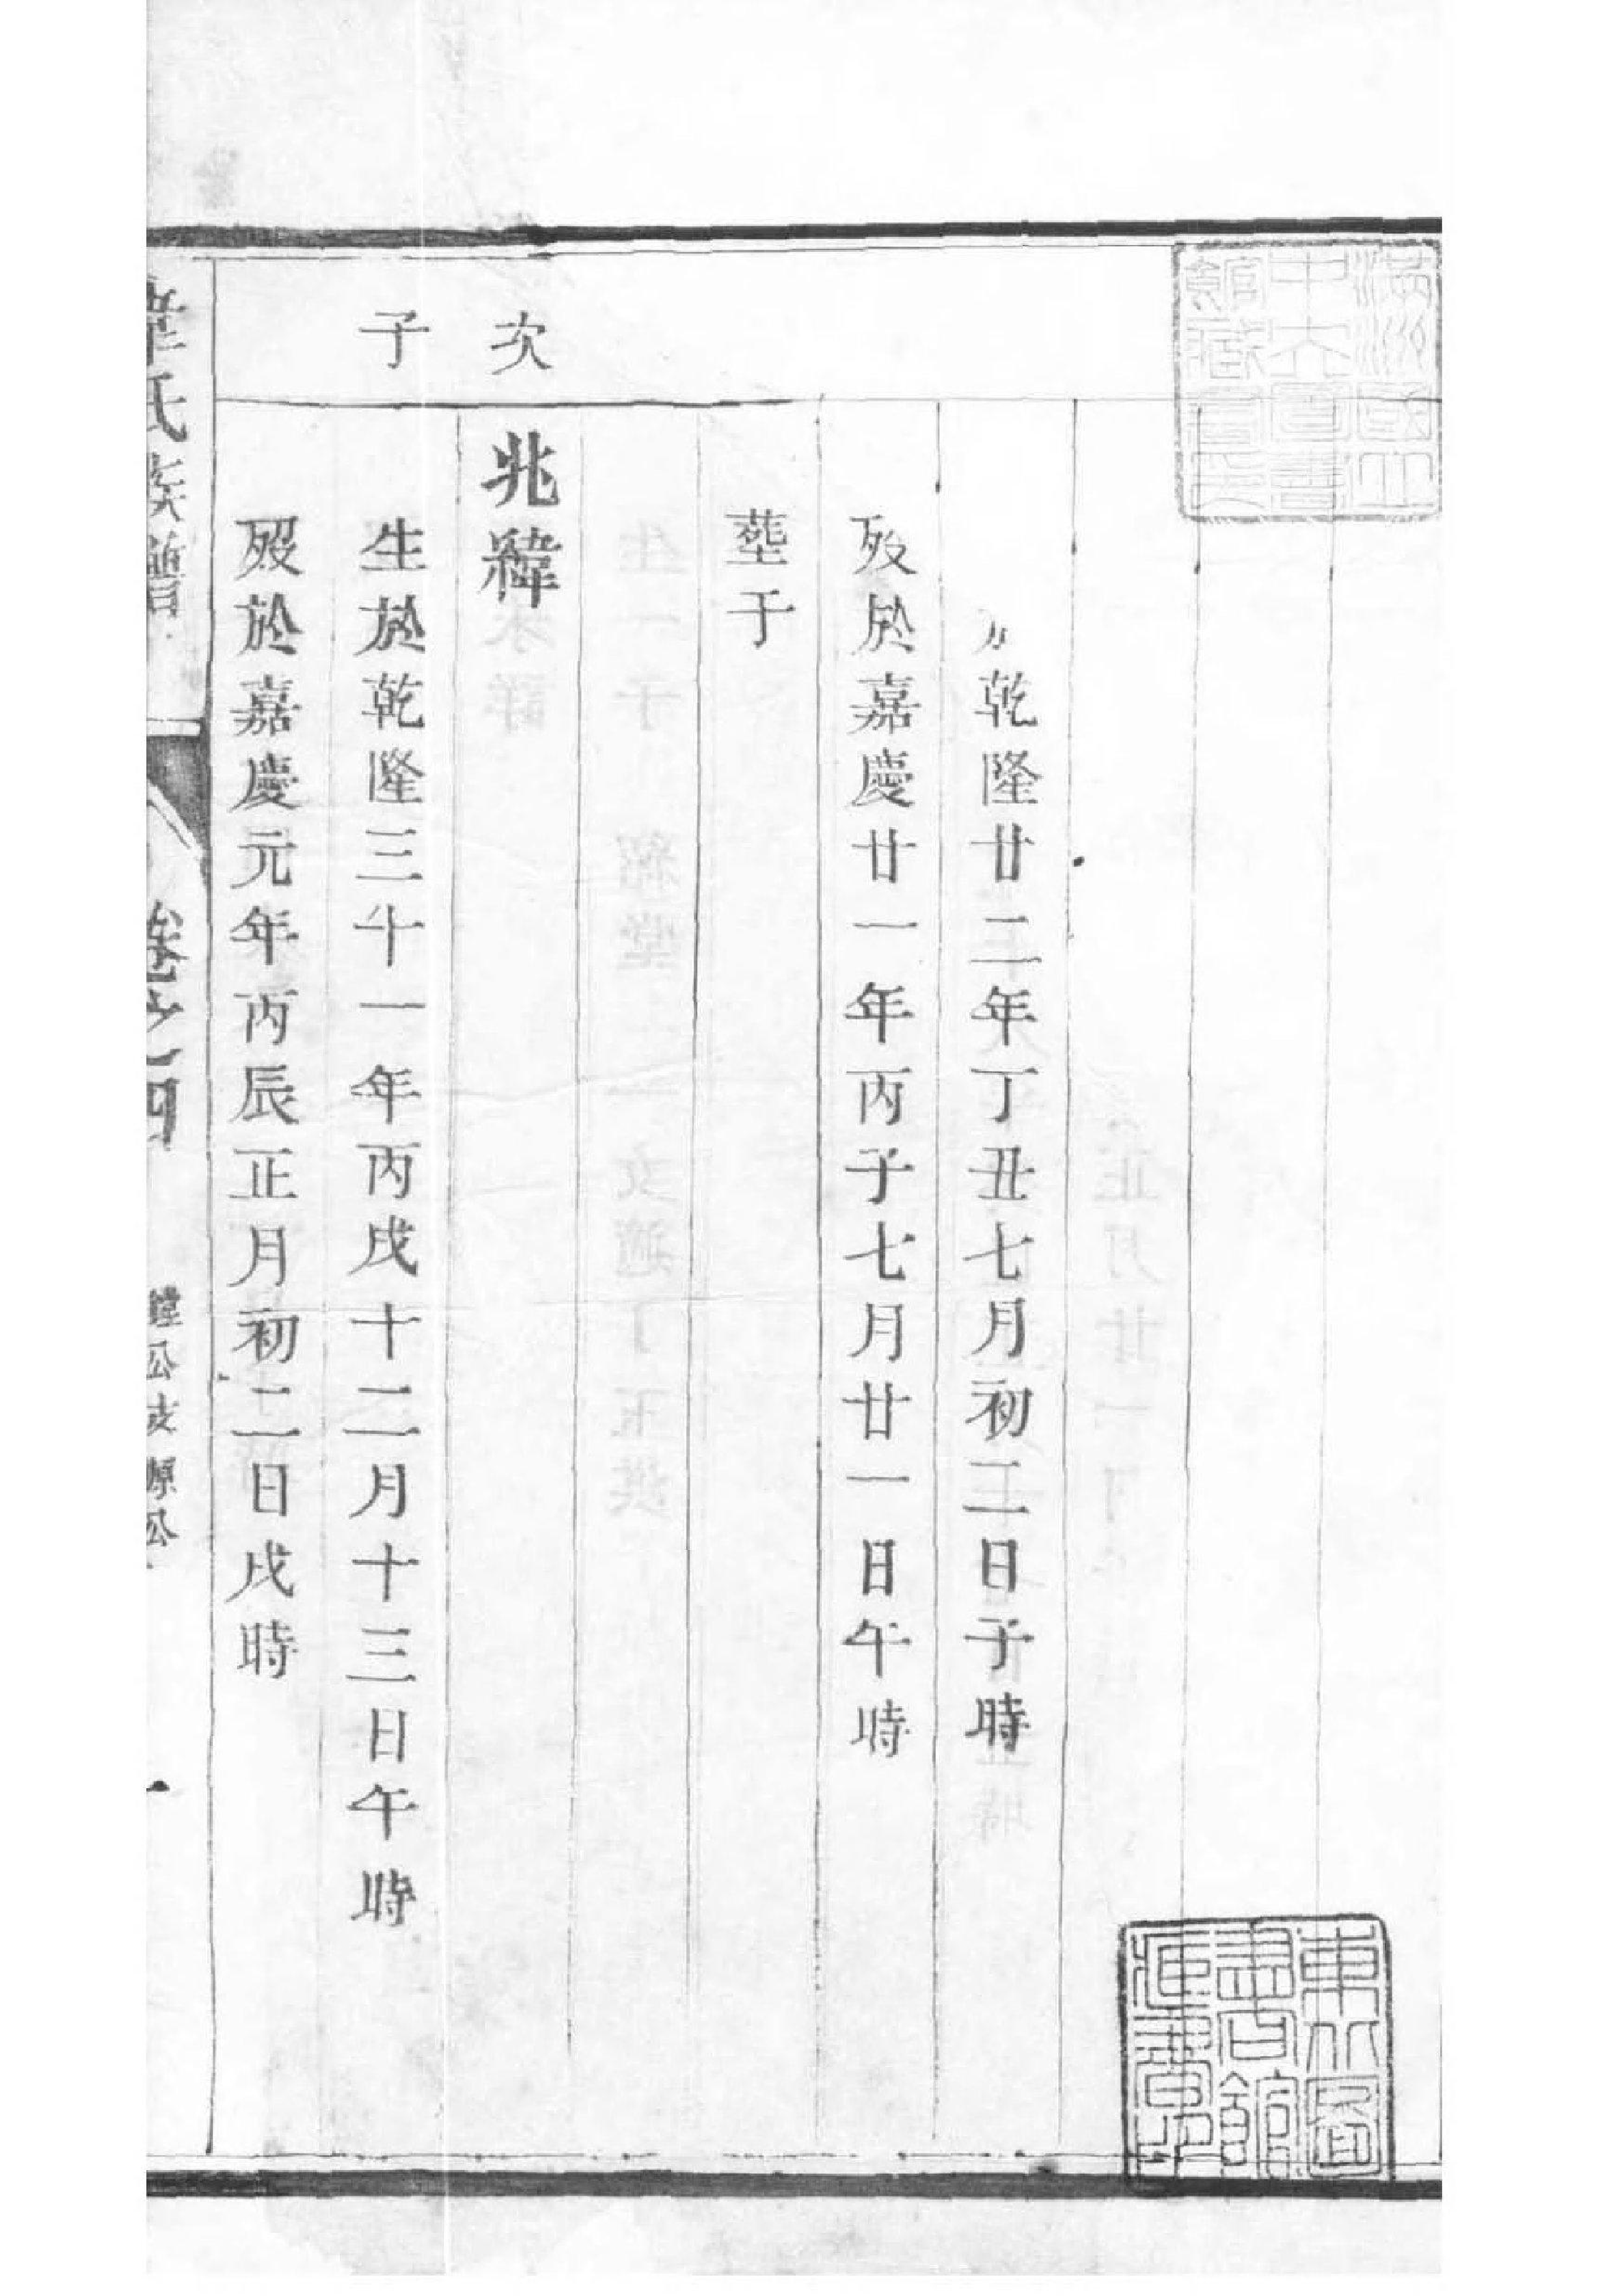 滿洲國立
中央圖書
館藏
東北圖
書館
乾隆廿二年丁丑七月初二日子時
歿於嘉慶廿一年丙子七月廿一日午時
塟于
次子
兆緯
生於乾隆三十一年丙戌十二月十三日午時
歿於嘉慶元年丙辰正月初二日戌時
氏族譜
卷之四
公支源公